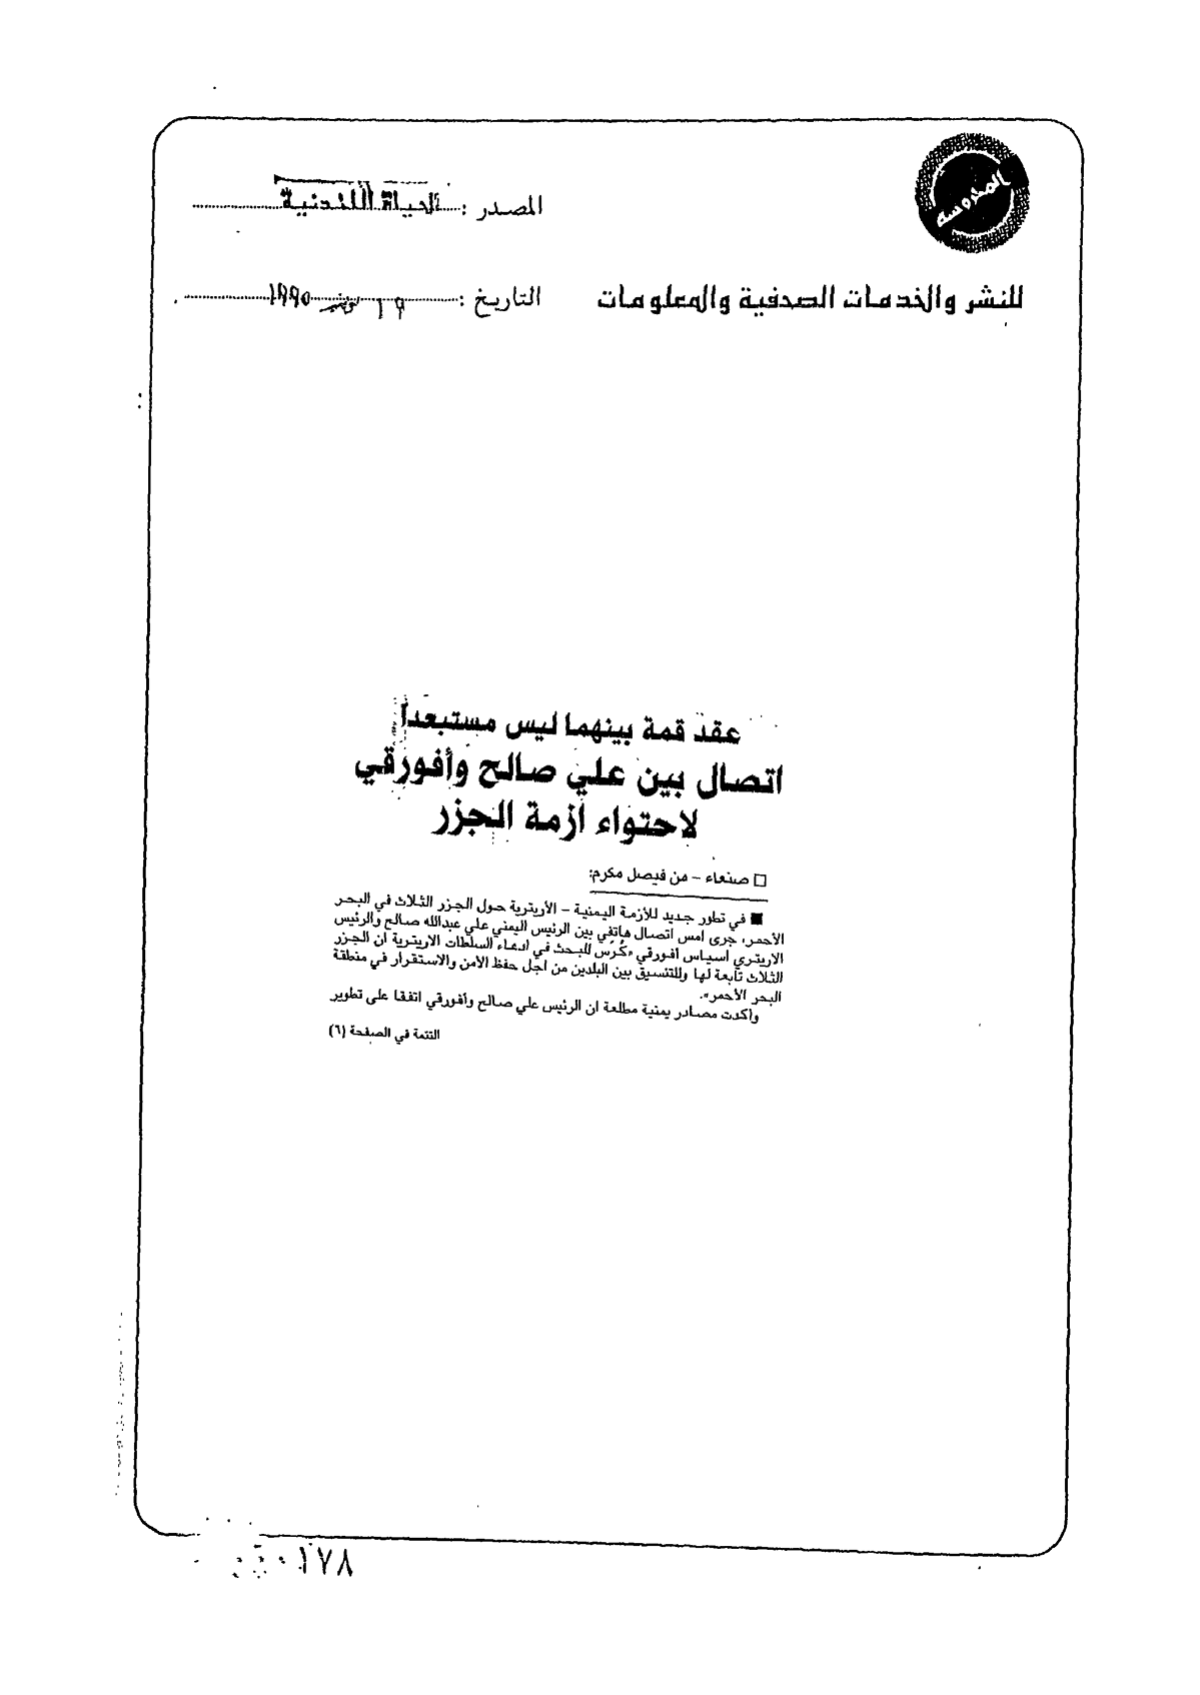 المحروسة
المصدر : الحياة اللندنية
للنشر والخدمات الصحفية والمعلومات
التاريخ : ١٩ نوفمبر ١٩٩٥
عقد قمة بينهما ليس مستبعداً
اتصال بين علي صالح وأفورقي
لاحتواء ازمة الجزر
□ صنعاء – من فيصل مكرم:
■ في تطور جديد للأزمة اليمنية – الأريترية حول الجزر الثلاث في البحر
الأحمر، جرى امس اتصال هاتفي بين الرئيس اليمني علي عبدالله صالح والرئيس
الاريتري اسياس افورقي «كُرّس للبحث في ادعاء السلطات الاريترية ان الجزر
الثلاث تابعة لها وللتنسيق بين البلدين من اجل حفظ الأمن والاستقرار في منطقة
البحر الأحمر».
واكدت مصادر يمنية مطلعة ان الرئيس علي صالح وأفورقي اتفقا على تطوير
التتمة في الصفحة (٦)
٠١٧٨